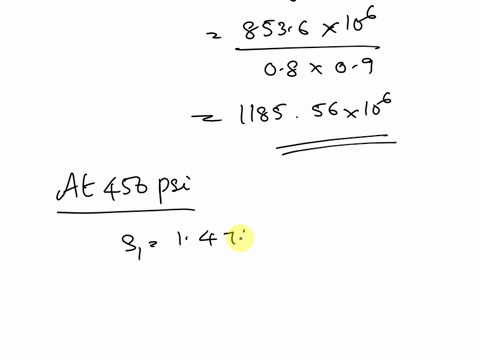 = 853.6 × 10⁶
0.8 × 0.9
= 1185.56 × 10⁶
At 450 psi
S₁ = 1.47